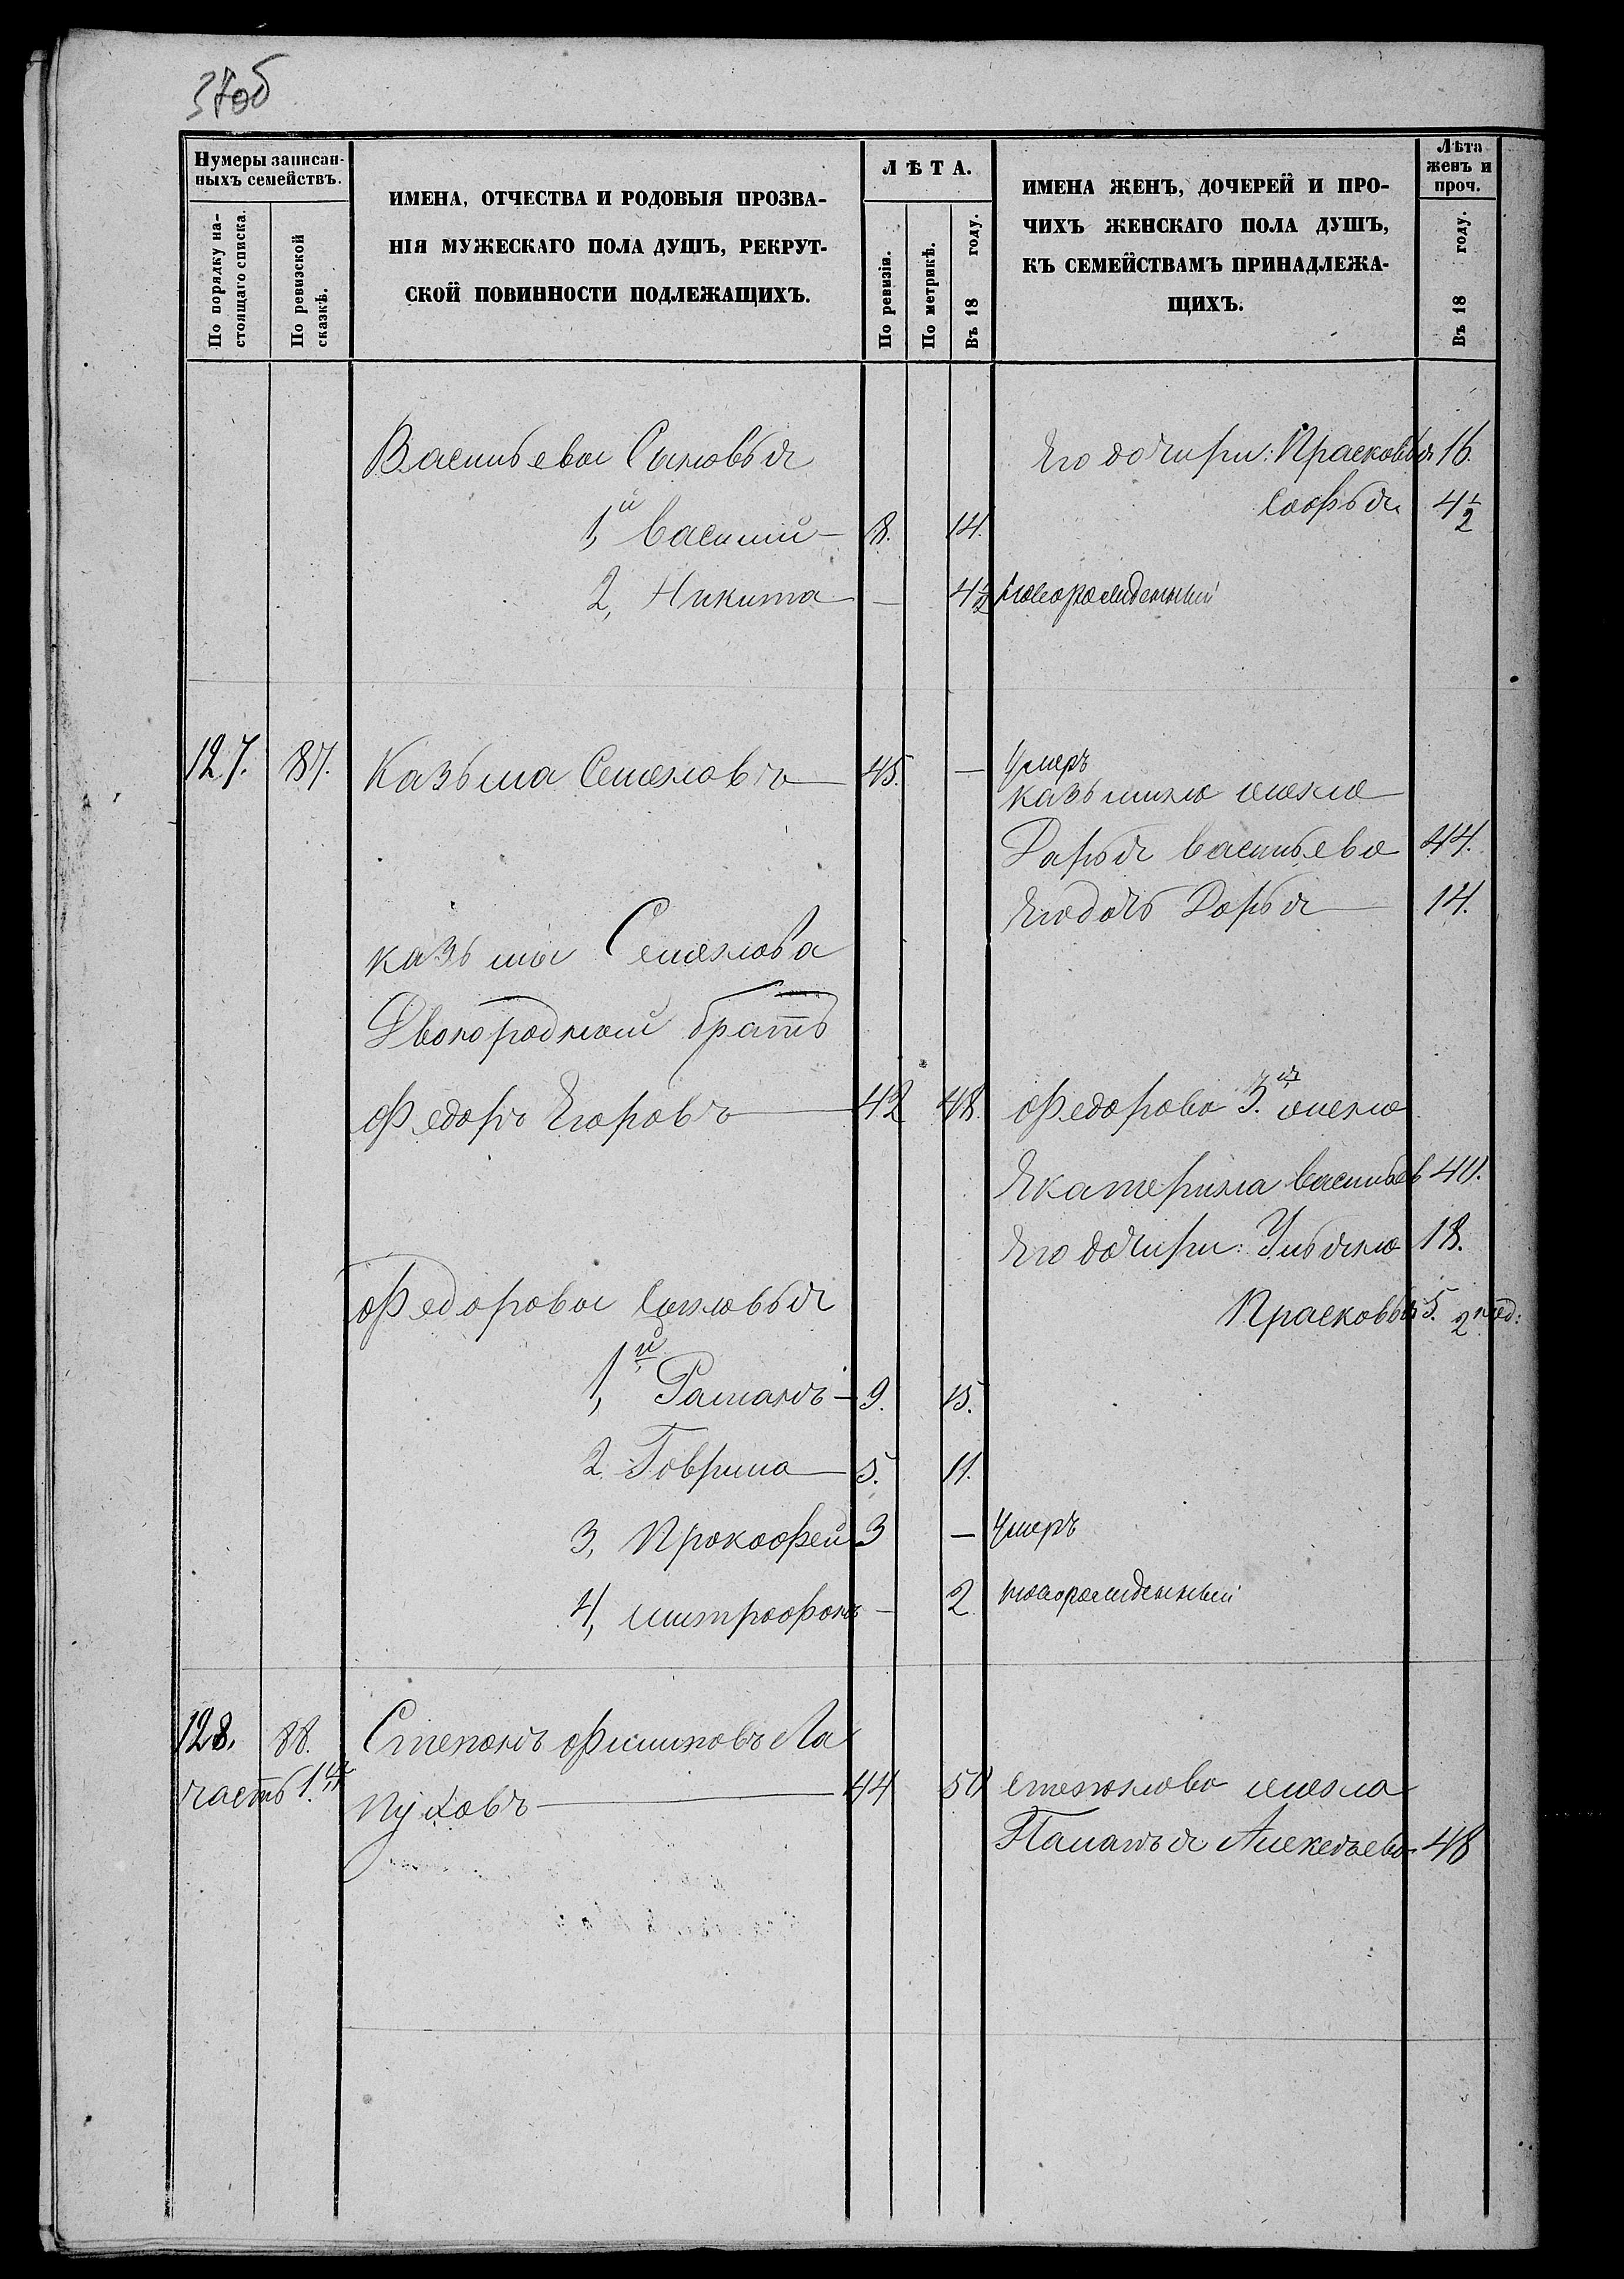 37об
Нумеры записан-
ныхъ семействъ.
По порядку на-
стоящаго списка.
По ревизской
сказкѣ.
ИМЕНА, ОТЧЕСТВА И РОДОВЫЯ ПРОЗВА-
НІЯ МУЖЕСКАГО ПОЛА ДУШЪ, РЕКРУТ-
СКОЙ ПОВИННОСТИ ПОДЛЕЖАЩИХЪ.
ЛѢТА.
По ревизіи.
По метрикѣ.
Въ 18 году.
ИМЕНА ЖЕНЪ, ДОЧЕРЕЙ И ПРО-
ЧИХЪ ЖЕНСКАГО ПОЛА ДУШЪ,
КЪ СЕМЕЙСТВАМЪ ПРИНАДЛЕЖА-
ЩИХЪ.
Лѣта
женъ и
проч.
Въ 18 году.
Васильева Сыновья
Его дочири: Прасковья 16.
Софья 4½
1,й Василий — 8. 14.
2, Никита — 4½ новорожденный
127. 87. Казьма Семеновъ — 45. — Умеръ
казьмина жена
Дарья Васильева 44.
Его дочь Дарья — 14.
казьмы Семенова
Двоюродный братъ
Федоръ Егоровъ — 42 48. Федорова 3.я жена
Екатерина Васильев 40.
Его дочири: Ульяна 18.
Федоровы Сыновья
Прасковья 5. 2 нед:
1,й Раманъ — 9. 15.
2. Гаврила — 5. 11.
3, Прокофей 3 — Умеръ
4, митрофанъ — 2. новорожденный
128. 88. Степанъ Филиповъ Ла
часть 1.я
пуховъ — 44 50 степанова жена
Паланья Алексѣева 48